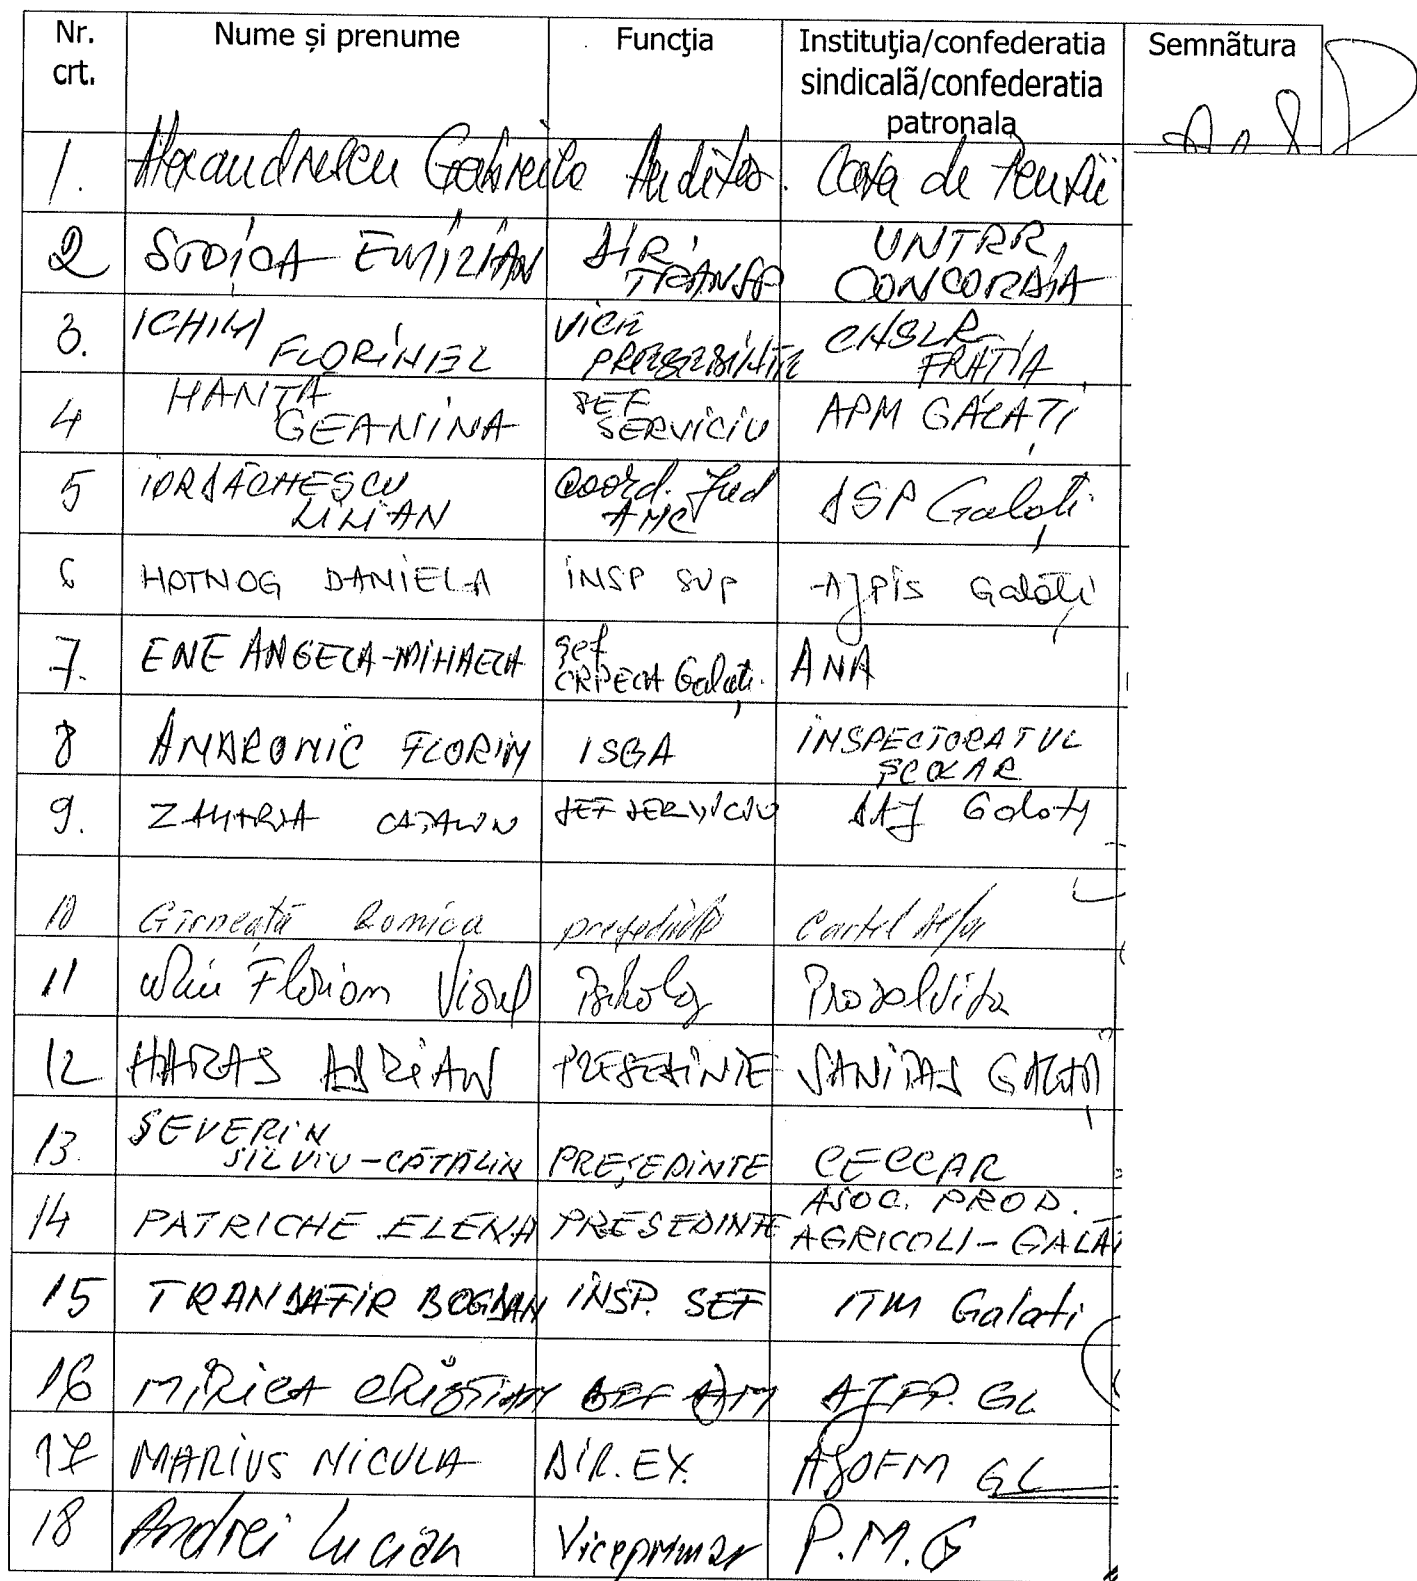 Nr. crt. Nume și prenume Funcţia Instituţia/confederatia sindicalã/confederatia patronala Semnãtura
1. Alexandrescu Gabriela Auditor. Casa de Pensii
2 STOICA EMILIAN DIR. TRANSP UNTRR, CONCORDIA
3. ICHIM FLORINEL VICE PREȘEDINTE CNSLR FRATIA
4 HANȚA GEANINA ȘEF SERVICIU APM GALAȚI
5 IORDĂCHESCU LILIAN Coord. Jud AMC DSP Galați
6 HOTNOG DANIELA INSP SUP AJPIS Galați
7. ENE ANGELA-MIHAELA șef Galați. ANA
8 FLORIN INSPECTORATUL ȘCOLAR
9. ZAHARIA CATALIN SEF SERVICIU DAJ Galati
10 Girneață Romica președinte Cartel Alfa
11 Florian Viorel Psiholog Prosalvita
12 HARAS ADRIAN PRESEDINTE SANITAS GALAȚI
13. SEVERIN SILVIU-CĂTĂLIN PREȘEDINTE CECCAR
14 PATRICHE ELENA PRESEDINTE ASOC. PROD. AGRICOLI - GALAȚ
15 TRANDAFIR BOGDAN INSP. SEF ITM Galati
16 MIRICA CRISTIAN SEF AJFP. GL
17 MARIUS NICULA DIR. EX. AJOFM GL
18 Andrei Lucian Viceprimar P.M.G